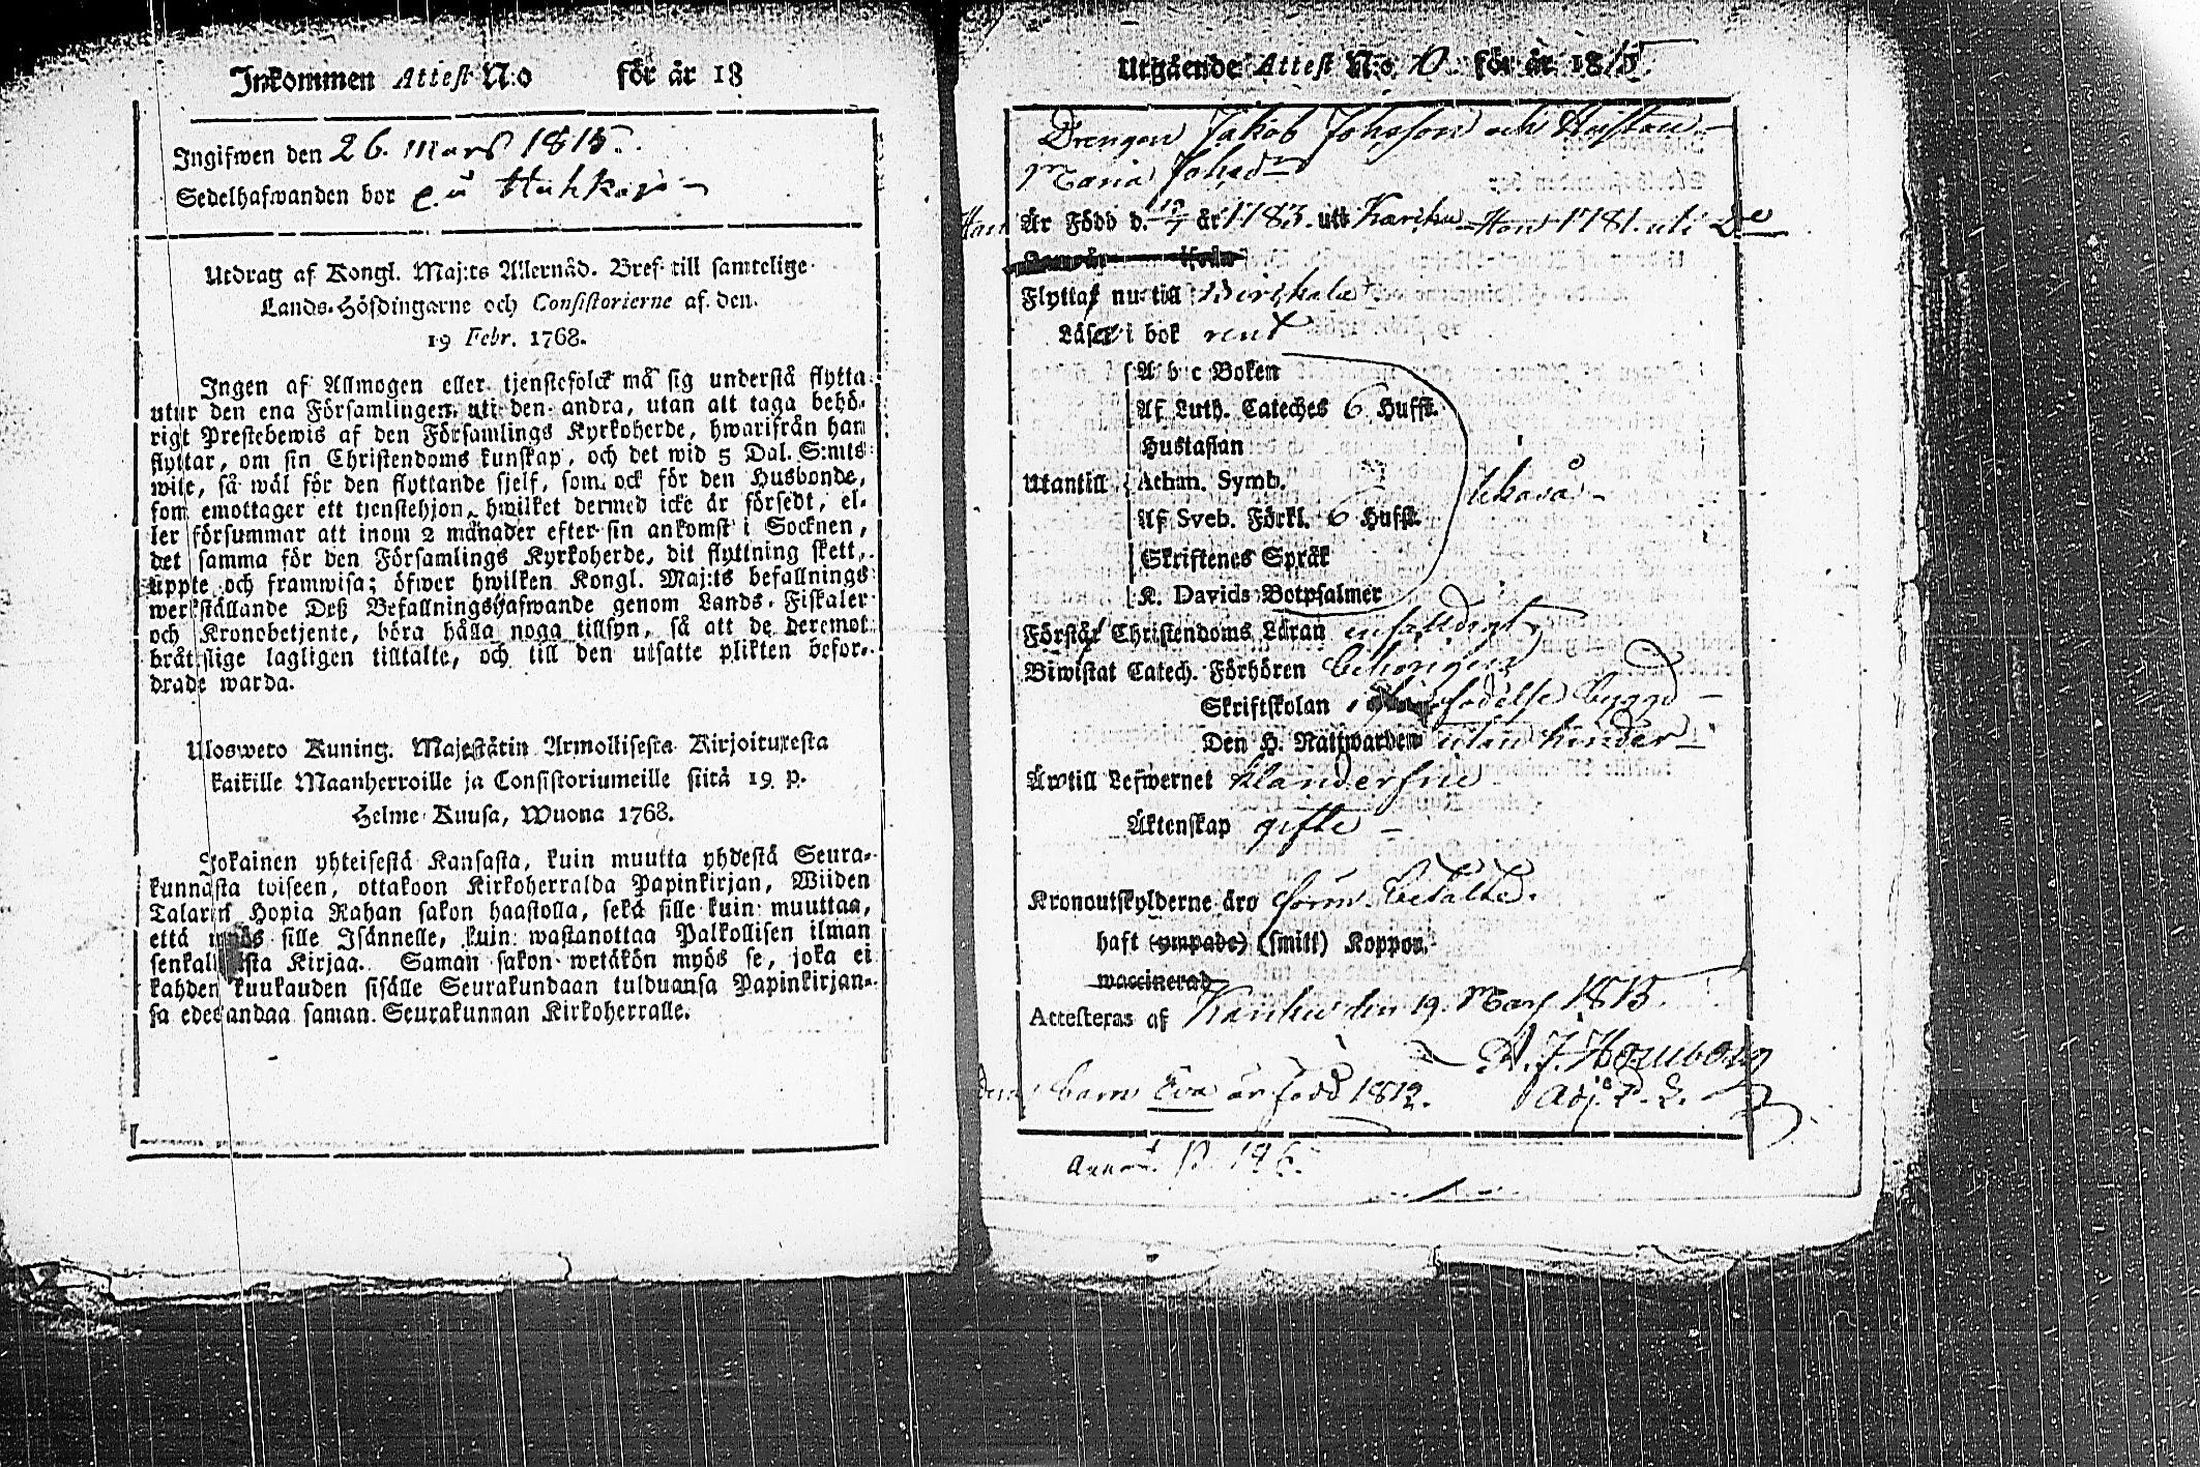 Inkommen Attest N:o för år 18
Ingifwen den 26. Mars 1815.
Sedelhafwanden bor på
Utdrag af Kongl. Maj:ts Allernåd. Bref till samtelige
Lands-Höfdingarne och Consistorierne af den
19 Febr. 1768.
Ingen af Allmogen eller tjenstefolck må sig understå flytta
utur den ena Församlingen uti den andra, utan att taga behö-
rigt Prestebewis af den Församlings Kyrkoherde, hwarifrån han
flyttar, om sin Christendoms kunskap, och det wid 5 Dal. S:mts
wite, så wäl för den flyttande sjelf, som ock för den Husbonde,
som emottager ett tjenstehjon, hwilket dermed icke är försedt, el-
ler försummar att inom 2 månader efter sin ankomst i Socknen,
det samma för den Församlings Kyrkoherde, dit flyttning skett,
uppte och framwisa; öfwer hwilken Kongl. Maj:ts befallnings
werkställande Deß Befallningshafwande genom Lands-Fiskaler
och Kronobetjente, böra hålla noga tillsyn, så att de deremot
bråtslige lagligen tilltalte, och till den utsatte plikten befor-
drade warda.
Ulosweto Kuning. Majestätin Armollisesta Kirjoituxesta
kaikille Maanherroille ja Consistoriumeille siitä 19 p.
Helme-Kuusa, Wuona 1768.
Jokainen yhteisestä Kansasta, kuin muutta yhdestä Seura-
kunnasta toiseen, ottakoon Kirkoherralda Papinkirjan, Wiiden
Talarin Hopia Rahan sakon haastolla, sekä sille kuin muuttaa,
että myös sille Isännelle, kuin wastanottaa Palkollisen ilman
senkallisista Kirjaa. Saman sakon wetäkön myös se, joka ei
kahden kuukauden sisälle Seurakundaan tulduansa Papinkirjan-
sa edesandaa saman Seurakunnan Kirkoherralle.
Utgående Attest N:o 10. för år 1815.
Drengen Jakob Johansson och Hustru
Maria Johsdr
Han Är Född d. 19/7 år 1783. uti Kariku Hon 1781. uti Do
Flyttat nu till Birkala
Läser i bok rent
A b c Boken
Af Luth. Cateches 6 Hufst.
Hustaflan
Utantill Athan. Symb.
Af Sveb. Förkl. 6 Hufst.
Skriftenes Språk
K. Davids Botpsalmer
Förstår Christendoms Läran enfaldigt
Biwistat Catech. Förhören behörigen
Skriftskolan i födelse bygd
Den H. Nattwarden utan hinder
Är till Lefwernet klanderfrie
Äktenskap gifte
Kronoutskylderne äro betalte.
haft (ympade) (smitt) Koppor,
waccinerad
Attesteras af Karkku den 19. Mars 1815.
barn Eva är född 1812.
Adj. P. L.